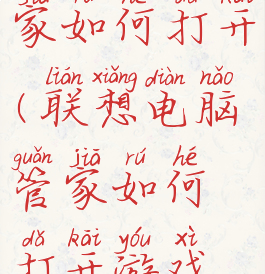 家如何打开
lián xiǎng diàn nǎo
(联想电脑
guǎn jiā rú hé
管家如何
dǎ kāi yóu xì
打开游戏